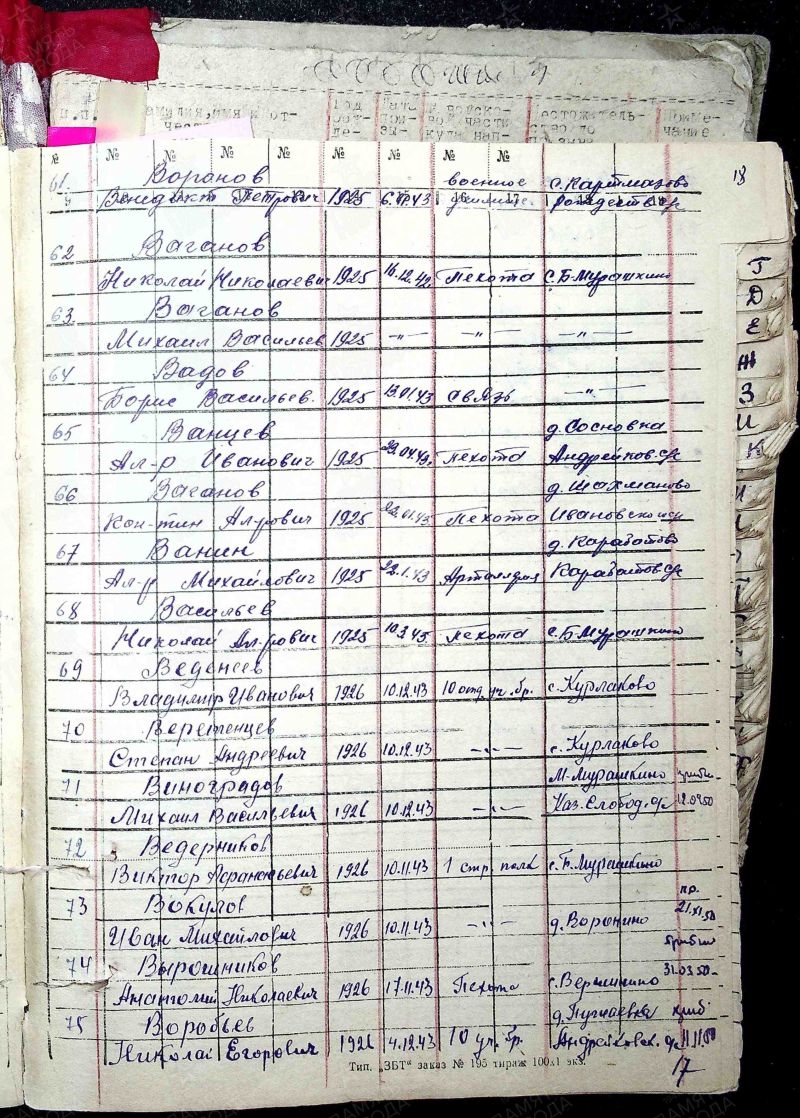 п.п.
амилия, имя и от-
чест
Год
рож-
де-
Дата
при-
зы-
войско-
во части
куда нап-
естожитель-
ство до
Приме-
чание
№ № № № № № №
18
61. Воронов военное с. Картмазово
Венедикт Петрович 1925 43 училище рождеств. с/с
62 Ваганов
Николай Николаевич 1925 16.12.42 Пехота с. Б-Мурашкино
63. Ваганов
Михаил Васильев 1925 -"- -"- -"-
64 Вадов
Борис Васильев. 1925 13.01.43 связь -"-
65 Ванцев д. Сосновка
Ал-р Иванович 1925 Пехота Андрейков. с/с
66 Ваганов д. Шахманово
Кон-тин Ал-рович 1925 22.01.43 Пехота Ивановский с/с
67 Ванин д. Каработово
Ал-р Михайлович 1925 22.1.43 Артилерия Карабатов с/с
68 Васильев
Николай Ал-рович 1925 Пехота с. Б-Мурашкино
69 Веденеев
Владимир Иванович 1926 10.12.43 10 отд. уч. бр. с. Курлаково
70 Веретенцев
Степан Андреевич 1926 10.12.43 -"- с. Курлаково
71 Виноградов М-Мурашкино прибы
Михаил Васильевич 1926 10.12.43 -"- Каз. Слобод. с/с 12.09.50
72 Ведерников
Виктор Афанасьевич 1926 10.11.43 1 стр. полк с. Б. Мурашкино
73 Вокулов пр.
21.XI.50
Иван Михайлович 1926 10.11.43 -"- д. Воронино
прибыл
74 Вырошников 31.03.50
Анатолий Николаевич 1926 17.11.43 Пехота с. Вершинино
75 Воробьев д. Пугаевка приб
Николай Егорович 1926 4.12.43 10 уч. бр. Андрейковск. с/с 11.11.50
Тип. „ЗБТ“ заказ № 195 тираж 100л1 экз.
17
Г
Д
Е
Ж
З
И
К